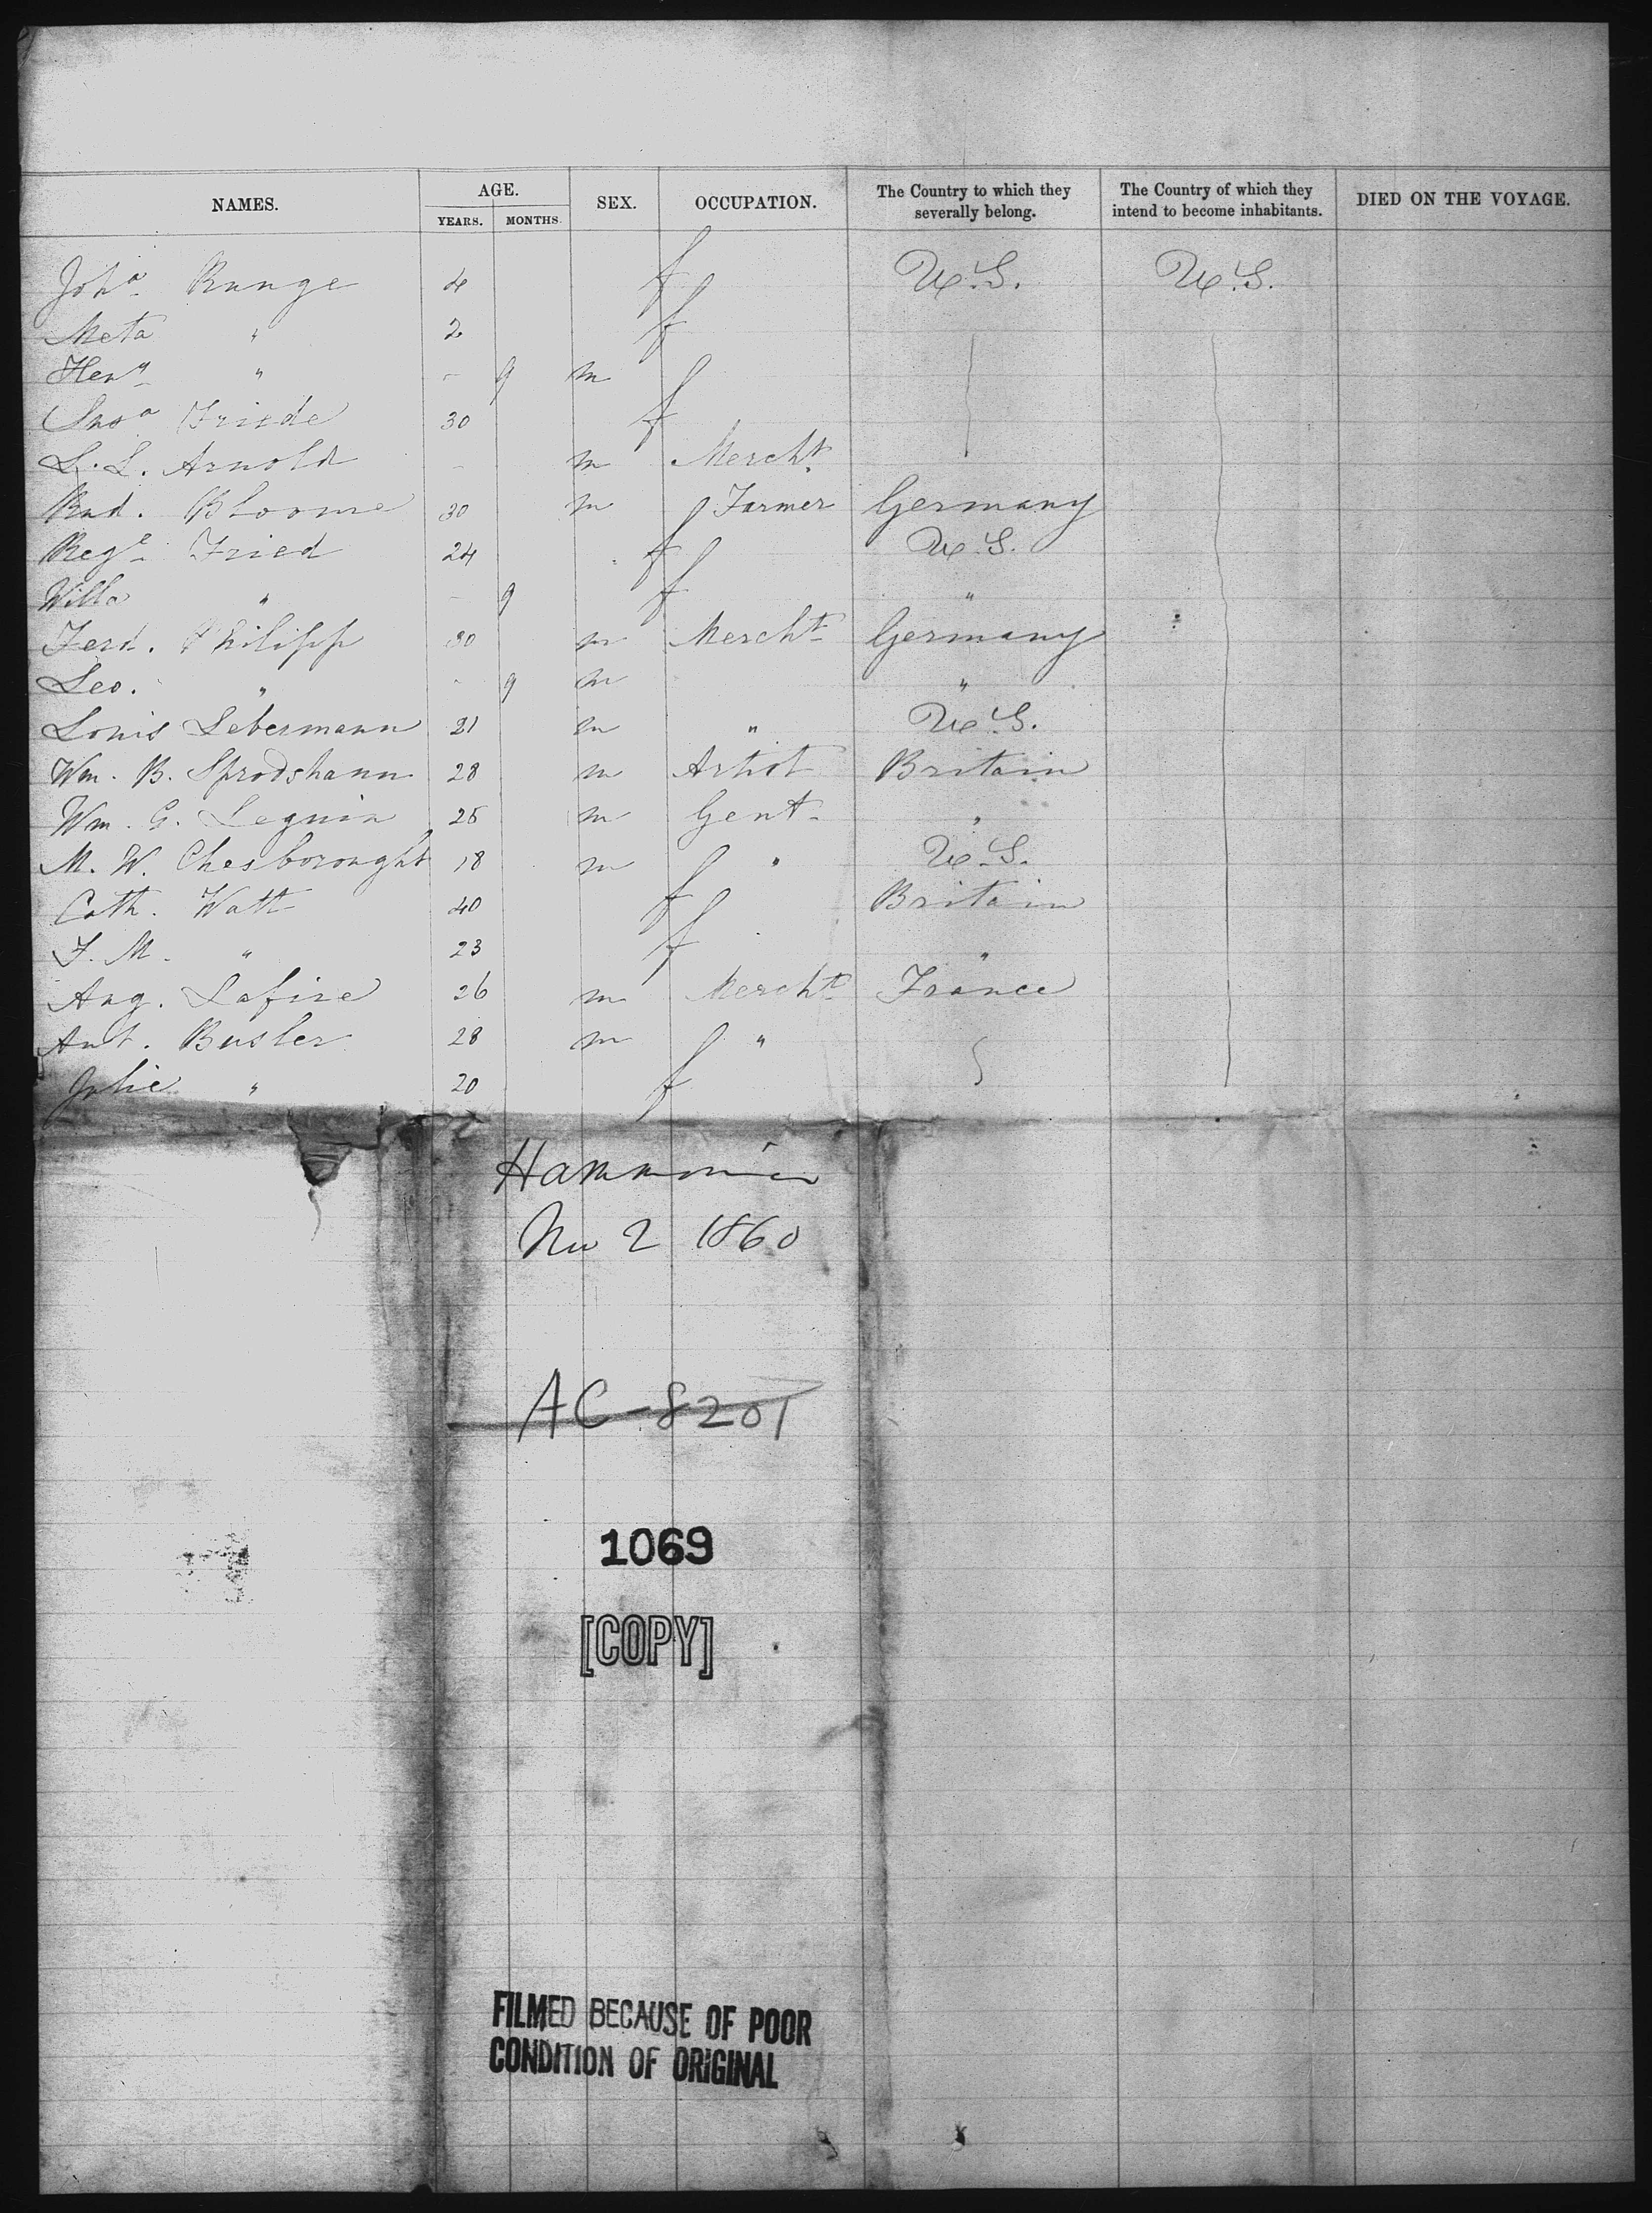 NAMES. AGE. SEX. OCCUPATION. The Country to which they severally belong. The Country of which they intend to become inhabitants. DIED ON THE VOYAGE.
YEARS. MONTHS.
Joha Runge 4 f U.S. U.S.
Meta " 2 f
Heny " - 9 m
Friede 30 f
L. L. Arnold - m Mercht
Rud. Bloome 30 m Farmer Germany
Rege Fried 24 f U.S.
Willa " - 9 f "
Ferd. Philipp 30 m Mercht Germany
Leo. " - 9 m "
Louis Lebermann 21 m " U.S.
Wm. B. Sprodshann 28 m Artist Britain
Wm. G. Leguin 25 m Gent "
M. W. Chesboronght 18 m " U.S.
Cath. Watt 40 f Britain
F. M. " 23 f "
Aug. Lafire 26 m Mercht France
Ant. Busler 28 m "
Julie " 20 f
Hammonia
Nov 2 1860
AC-8201
1069
[COPY]
FILMED BECAUSE OF POOR
CONDITION OF ORIGINAL